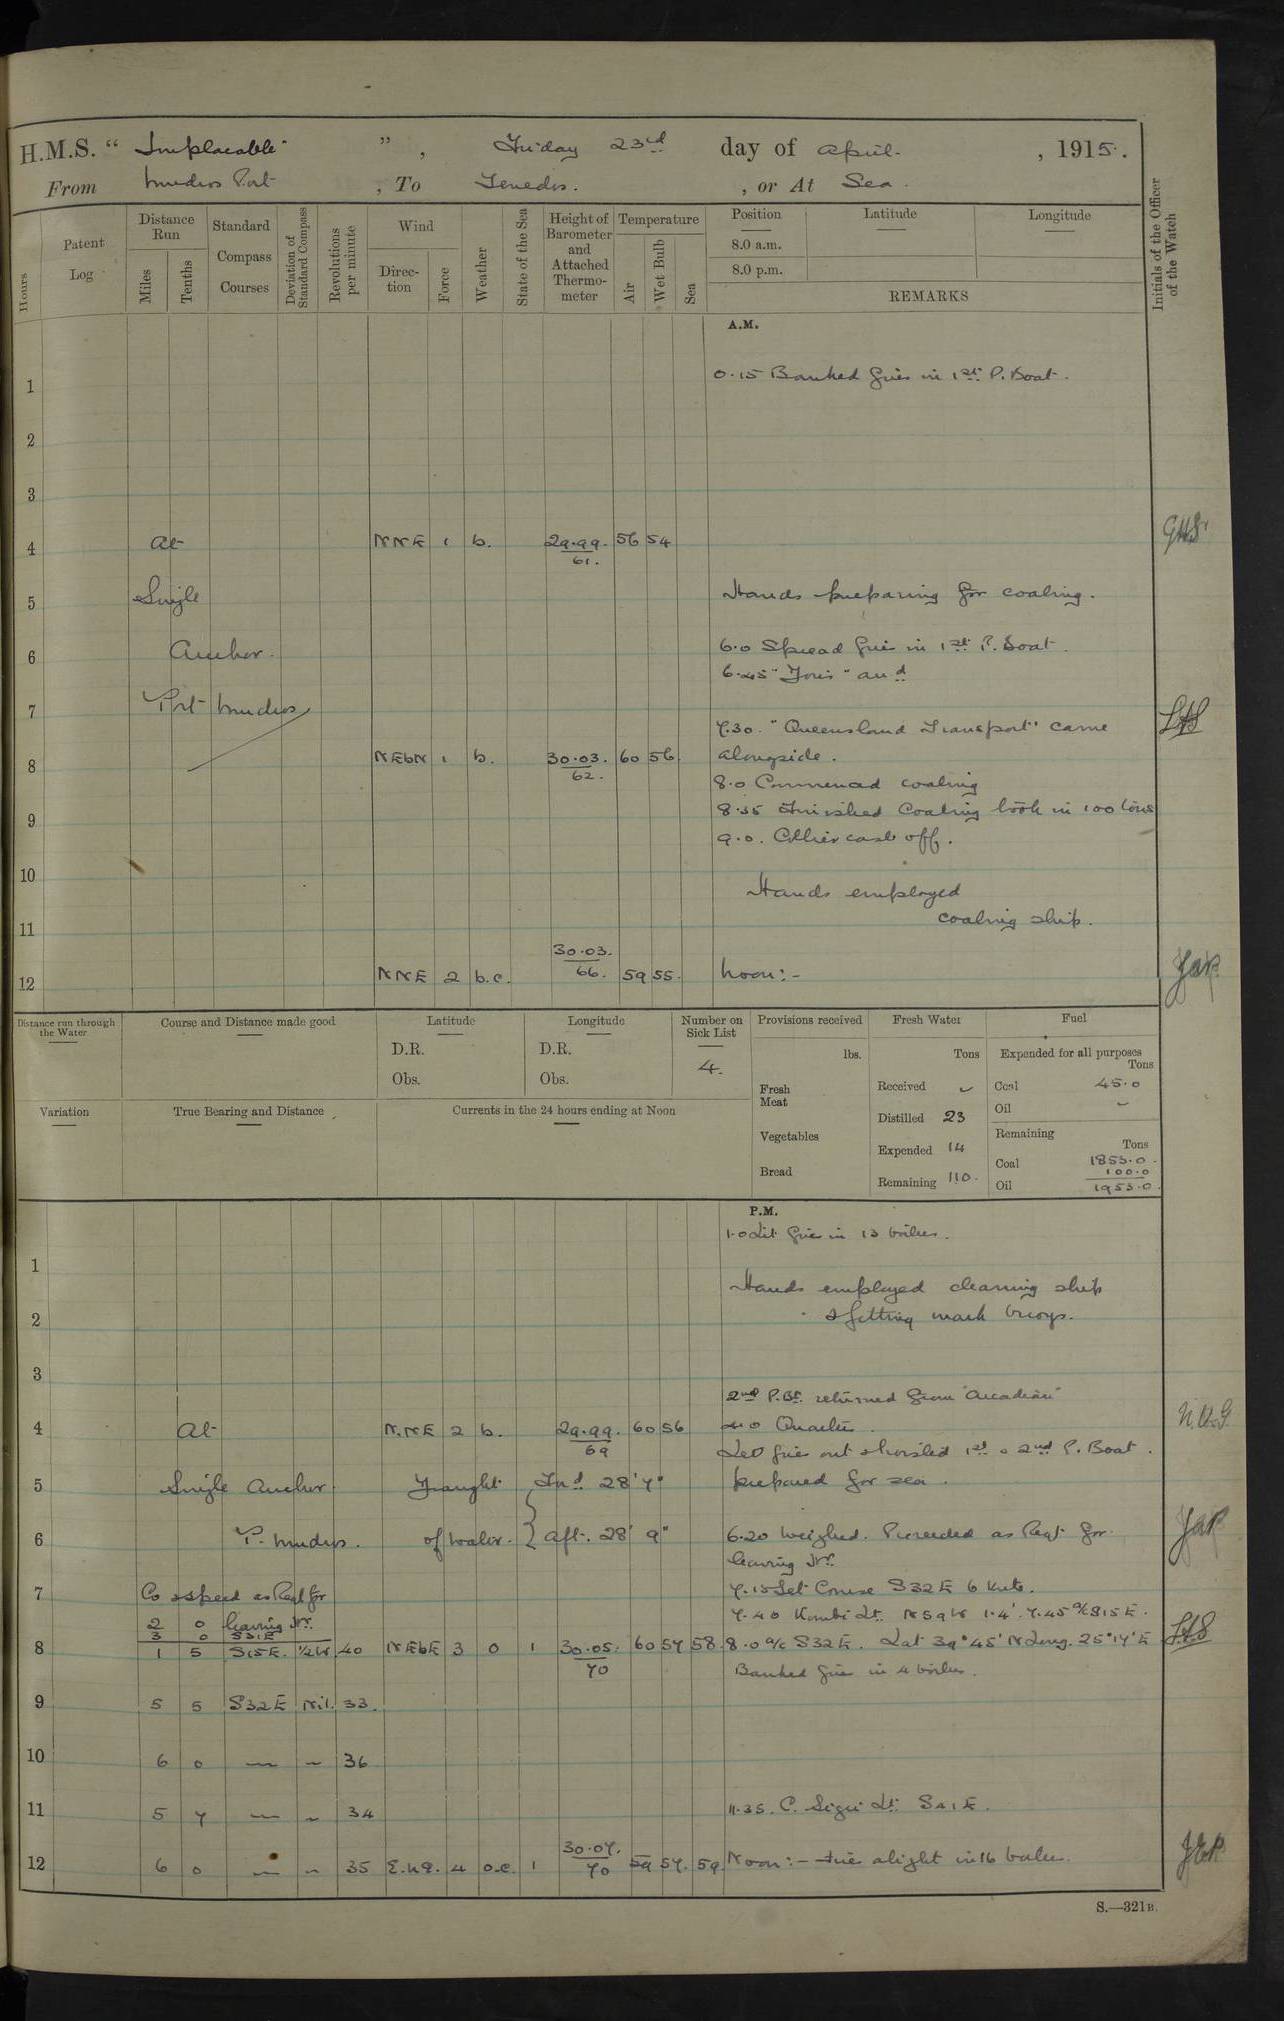 H.M.S. "Implacable", Friday 23rd day of April, 1915.
From Mudros Port, To Tenedos., or At Sea.
Hours
Patent Log
Distance Run
Miles
Tenths
Standard Compass Courses
Deviation of Standard Compass
Revolutions per minute
Wind
Direction
Force
Weather
State of the Sea
Height of Barometer and Attached Thermometer
Temperature
Air
Wet Bulb
Sea
Position
8.0 a.m.
8.0 p.m.
Latitude
Longitude
REMARKS
Initials of the Officer of the Watch
A.M.
1 0.15 Banked fires in 1st P. Boat.
2
3
4 At NNE 1 b. 29.99. 56 54
61.
5 Single Hands preparing for coaling.
6 Anchor. 6.0 Spread fires in 1st P. Boat.
6.45 and
7 Port Mudros
7.30. "Queensland Transport" came
8 NEbN 1 b. 30.03. 60 56 alongside.
62.
8.0 Commenced coaling
9 8.35 Finished Coaling took in 100 tons
9.0. Collier cast off.
10 Hands employed
11 coaling ship.
12 NNE 2 b.c. 30.03. 59 55. Noon:-
66.
Distance run through the Water
Course and Distance made good
Latitude
D.R.
Obs.
Longitude
D.R.
Obs.
Number on Sick List
4.
Provisions received
lbs.
Fresh Meat
Vegetables
Bread
Fresh Water
Tons
Received
Distilled 23
Expended 14
Remaining 110.
Fuel
Expended for all purposes
Tons
Coal 45.0
Oil
Remaining
Tons
Coal 1853.0.
100.0
Oil 1953.0.
Variation
True Bearing and Distance
Currents in the 24 hours ending at Noon
P.M.
1.0 Lit fires in 13 boilers.
1
Hands employed cleaning ship
2 & fitting mark buoys.
3
2nd P.Bt. returned from "Arcadian"
4 At N.NE 2 b. 29.99. 60 56 4.0 Quarters.
69
Let fires out & hoisted 1st & 2nd P. Boat.
5 Single Anchor Draught Ford 28' 7" prepared for sea.
6 P. Mudros. of water. aft. 28' 9" 6.20 Weighed. Proceeded as Reqt for
leaving Hr.
7 Co & speed as Reqt for 7.15 Set Course S32E 6 knts.
2 0 leaving Hr. 7.40 Kombi Lt. N59W 1.4'. 7.45 a/c S15E.
3 0 S31E
8 1 5 S15E. 1/2W 40 NEbE 3 0 1 30.05. 60 57 58 8.0 a/c S32E. Lat 39°45'N Long. 25°17'E
70
Banked fires in 4 boilers.
9 5 5 S32E Nil. 33.
10 6 0 — — 36
11 5 7 — — 34 11.35. C. Sigri Lt. S41E.
12 6 0 — — 35 4 o.c. 1 30.07. 59 57. 59. Noon:- Fires alight in 16 boilers.
70
S.—321B.